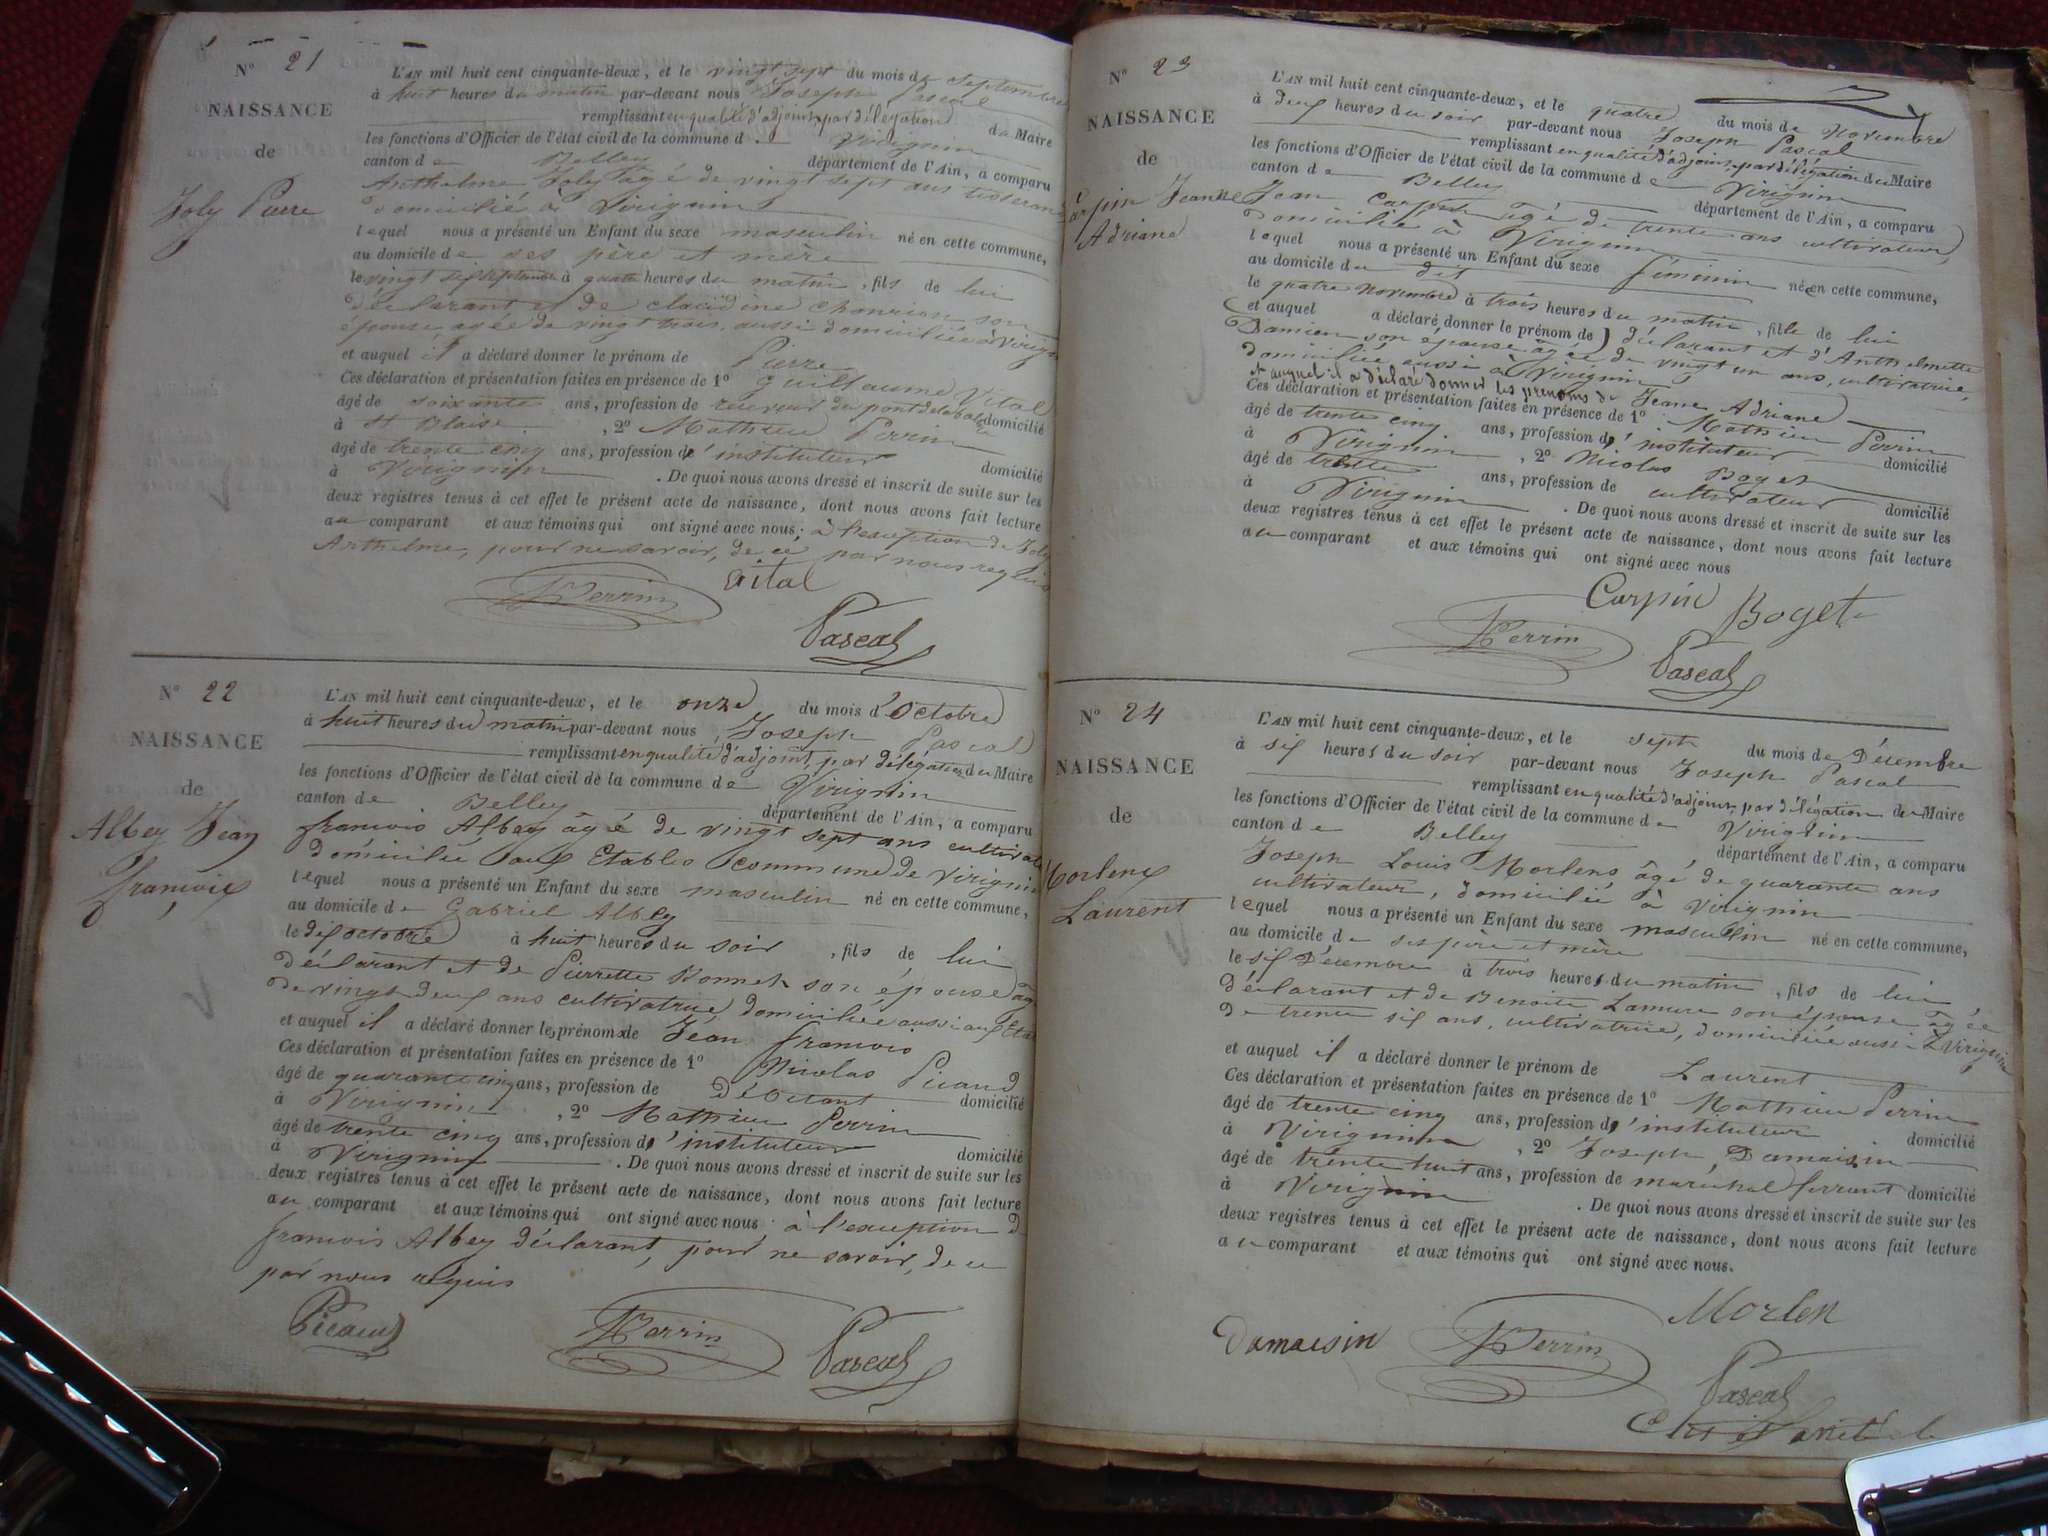 N° 21
NAISSANCE
de
Joly Pierre
L'AN mil huit cent cinquante-deux, et le vingt sept du mois de septembre
à huit heures du matin par-devant nous Joseph Pascal
remplissant en qualité d'adjoint, par délégation du Maire
les fonctions d'Officier de l'état civil de la commune d Virignin
canton de Belley département de l'Ain, a comparu
Anthelme Joly âgé de vingt sept ans tisserand
domicilié à Virignin
lequel nous a présenté un Enfant du sexe masculin né en cette commune,
au domicile de ses père et mère
le vingt sept septembre à quatre heures du matin, fils de lui
déclarant et de claudine chanrion son
épouse, agée de vingt trois, aussi domiciliée à Virignin
et auquel il a déclaré donner le prénom de Pierre
Ces déclaration et présentation faites en présence de 1° Guillaume Vital
âgé de soixante ans, profession de receveur du pont de la balme domicilié
à St Blaise, 2° Mathieu Perrin
âgé de trente cinq ans, profession d'instituteur domicilié
à Virignin. De quoi nous avons dressé et inscrit de suite sur les
deux registres tenus à cet effet le présent acte de naissance, dont nous avons fait lecture
au comparant et aux témoins qui ont signé avec nous; à l'exception de Joly
Anthelme, pour ne savoir, de ce par nous requis
Perrin vital
Pascal
N° 22
NAISSANCE
de
Albey Jean
françois
L'AN mil huit cent cinquante-deux, et le onze du mois d'Octobre
à huit heures du matin par-devant nous Joseph Pascal
remplissant en qualité d'adjoint, par délégation du Maire
les fonctions d'Officier de l'état civil de la commune de Virignin
canton de Belley département de l'Ain, a comparu
françois Albey âgé de vingt sept ans cultivateur
domicilié aux Etables commune de Virignin
lequel nous a présenté un Enfant du sexe masculin né en cette commune,
au domicile de Gabriel Albey
le dix octobre à huit heures du soir, fils de lui
déclarant et de Pierrette Bonnet son épouse âgée
de vingt deux ans cultivatrice, domiciliée aussi aux Etables
et auquel il a déclaré donner les prénoms de Jean françois
Ces déclaration et présentation faites en présence de 1° Nicolas Picaud
âgé de quarante cinq ans, profession de Débitant domicilié
à Virignin, 2° Mathieu Perrin
âgé de trente cinq ans, profession d'instituteur domicilié
à Virignin. De quoi nous avons dressé et inscrit de suite sur les
deux registres tenus à cet effet le présent acte de naissance, dont nous avons fait lecture
au comparant et aux témoins qui ont signé avec nous à l'exception de
françois Albey déclarant, pour ne savoir, de ce
par nous requis
Picaud Perrin Pascal
N° 23
NAISSANCE
de
Carpin Jeanne
Adriane
L'AN mil huit cent cinquante-deux, et le quatre du mois de Novembre
à deux heures du soir par-devant nous Joseph Pascal
remplissant en qualité d'adjoint, par délégation du Maire
les fonctions d'Officier de l'état civil de la commune de Virignin
canton de Belley département de l'Ain, a comparu
Jean Carpin âgé de trente ans cultivateur,
domicilié à Virignin
lequel nous a présenté un Enfant du sexe féminin née en cette commune,
au domicile du dit
le quatre novembre à trois heures du matin, fille de lui
(et auquel a déclaré donner le prénom de) déclarant et d'Anthelmette
Damien son épouse âgée de vingt un ans, cultivatrice,
domiciliée aussi à Virignin
et auquel il a déclaré donner les prénoms de Jeanne Adriane
Ces déclaration et présentation faites en présence de 1° Mathieu Perrin
âgé de trente cinq ans, profession d'instituteur domicilié
à Virignin, 2° Nicolas Boget
âgé de trente ans, profession de cultivateur domicilié
à Virignin. De quoi nous avons dressé et inscrit de suite sur les
deux registres tenus à cet effet le présent acte de naissance, dont nous avons fait lecture
au comparant et aux témoins qui ont signé avec nous
Carpin Boget
Perrin Pascal
N° 24
NAISSANCE
de
Morlens
Laurent
L'AN mil huit cent cinquante-deux, et le sept du mois de Décembre
à six heures du soir par-devant nous Joseph Pascal
remplissant en qualité d'adjoint, par délégation du Maire
les fonctions d'Officier de l'état civil de la commune de Virignin
canton de Belley département de l'Ain, a comparu
Joseph Louis Morlens âgé de quarante ans
cultivateur, domicilié à Virignin
lequel nous a présenté un Enfant du sexe masculin né en cette commune,
au domicile de ses père et mère
le six Décembre à trois heures du matin, fils de lui
déclarant et de Benoite Lamure son épouse âgée
de trente six ans, cultivatrice, domiciliée aussi à Virignin
et auquel il a déclaré donner le prénom de Laurent
Ces déclaration et présentation faites en présence de 1° Mathieu Perrin
âgé de trente cinq ans, profession d'instituteur domicilié
à Virignin, 2° Joseph Damaisin
âgé de trente huit ans, profession de maréchal ferrant domicilié
à Virignin. De quoi nous avons dressé et inscrit de suite sur les
deux registres tenus à cet effet le présent acte de naissance, dont nous avons fait lecture
au comparant et aux témoins qui ont signé avec nous.
Morlen
Damaisin Perrin
Pascal